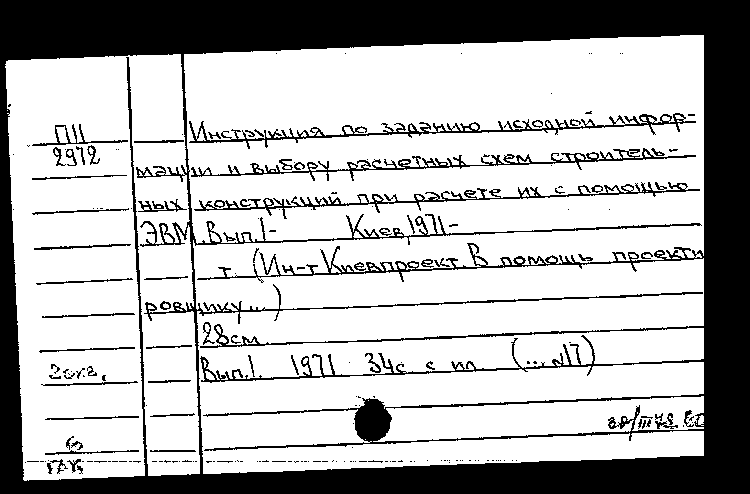 П11
2972
Инструкция по заданию исходной инфор-
мации и выбору расчетных схем строитель-
ных конструкций при расчете их с помощью
ЭВМ. Вып.1- Киев, 1971-
т. (Ин-т Киевпроект. В помощь проекти
ровщику...)
28см.
2экз. Вып.1. 1971 34с с ил. (... №17)